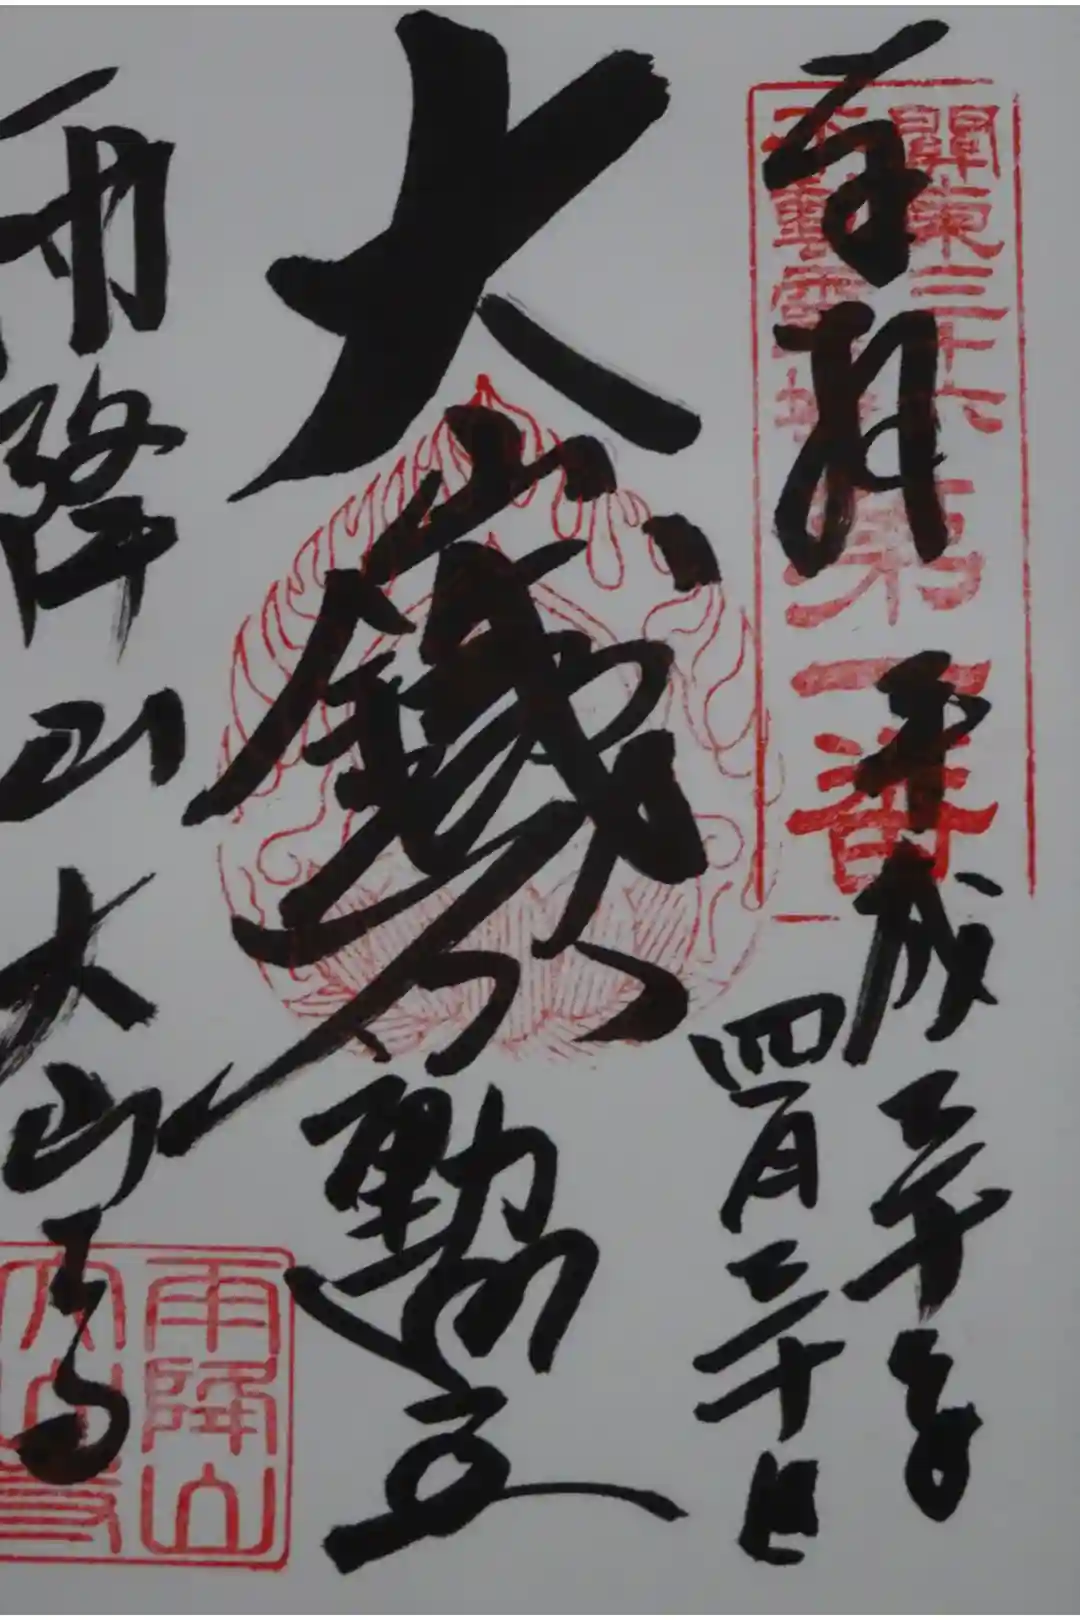 奉拝
關東三十六
不動霊場
第一番
平成三十年
四月三十日
雨降山大山寺
雨降山
大山寺